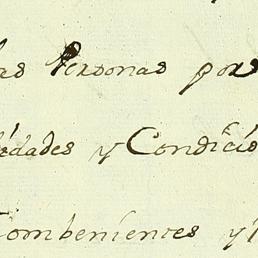 las Personas por
iedades y Condicio
Combenientes y